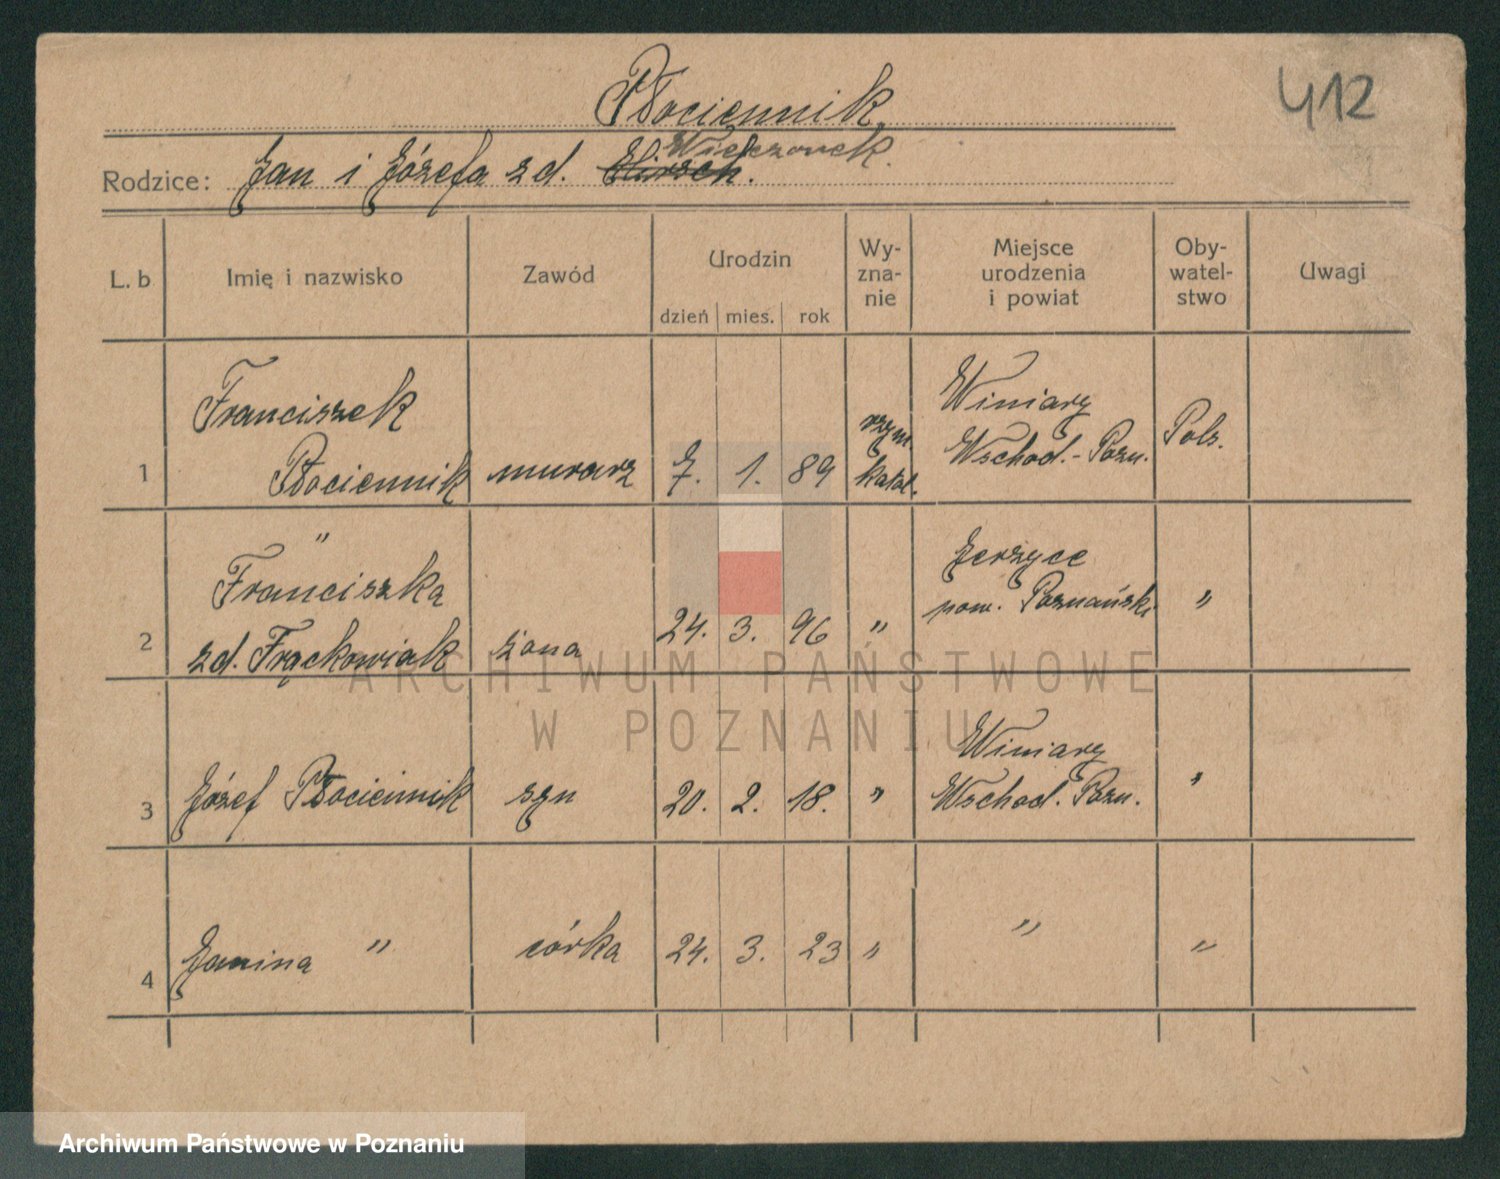 Płociennik
412
Wieczorek.
Rodzice: Jan i Józefa z d. Hirsch.
L. b Imię i nazwisko Zawód Urodzin dzień mies. rok Wy-zna-nie Miejsce urodzenia i powiat Oby-watel-stwo Uwagi
1 Franciszek Płociennik murarz 7. 1. 89 rzym. katol. Winiary Wschod.-Pozn. Pols.
2 Franciszka " zd. Frąckowiak żona 24. 3. 96 " Jerzyce pow. Poznański "
3 Józef Płociennik syn 20. 2. 18. " Winiary Wschod. Pozn. "
4 Janina " córka 24. 3. 23 " " "
ARCHIWUM PAŃSTWOWE
W POZNANIU
Archiwum Państwowe w Poznaniu